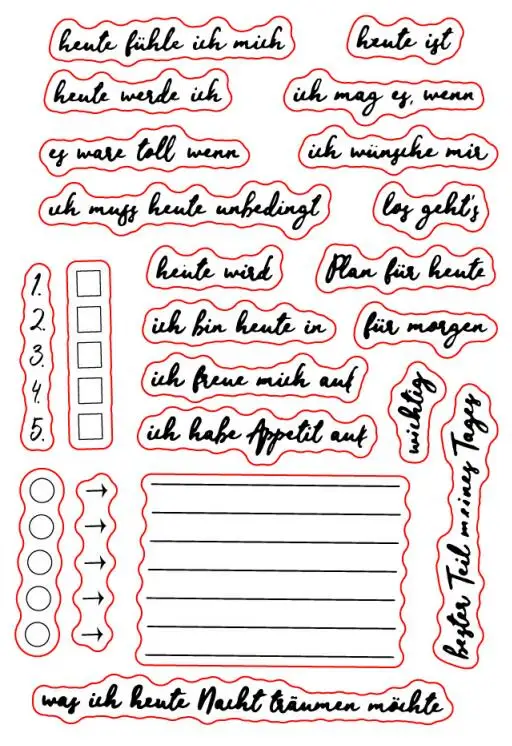 heute fühle ich mich
heute ist
heute werde ich
ich mag es, wenn
es ware toll wenn
ich wünsche mir
ich muss heute unbedingt
los geht's
heute wird
Plan für heute
1.
2.
3.
4.
5.
ich bin heute in
für morgen
ich freue mich auf
wichtig
ich habe Appetit auf
bester Teil meines Tages
→
→
→
→
→
was ich heute Nacht träumen möchte